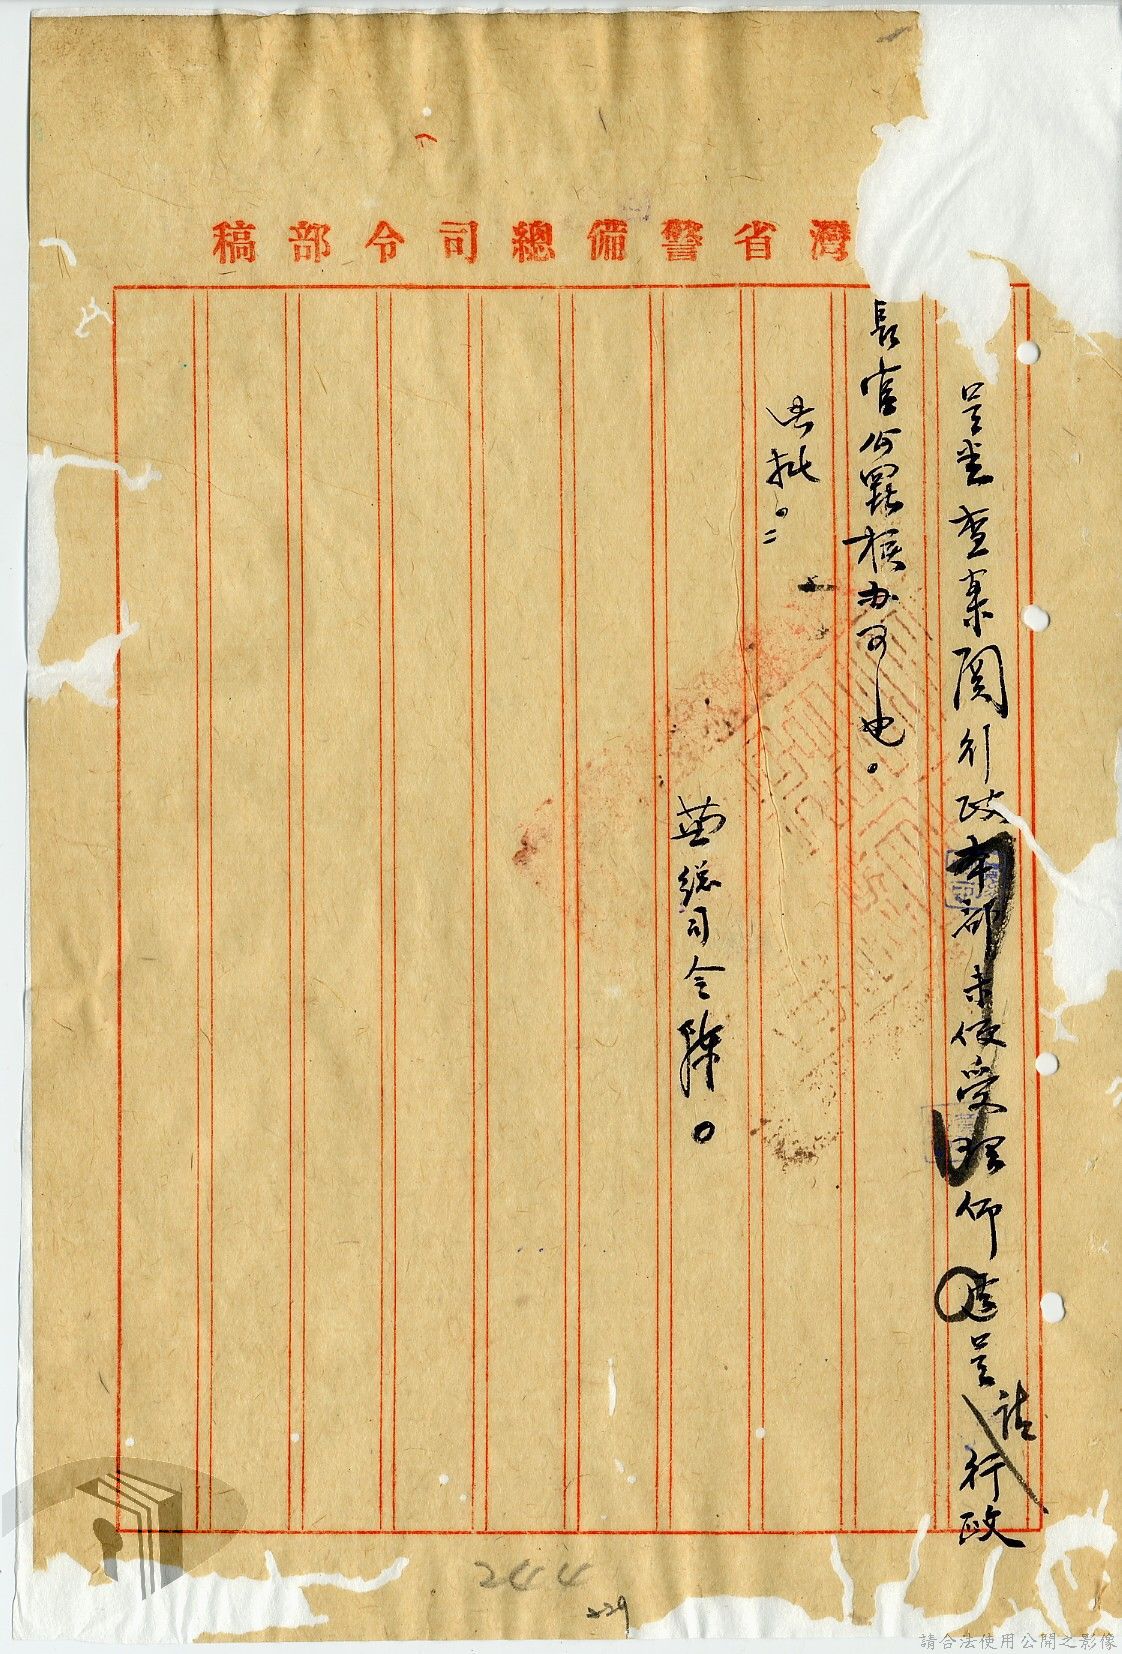 灣省警備總司令部稿
呈悉查案関行政本部未便受理仰逕呈請行政
長官公署核办可也。
此批。
兼總司令陳〇
244
229
請合法使用公開之影像